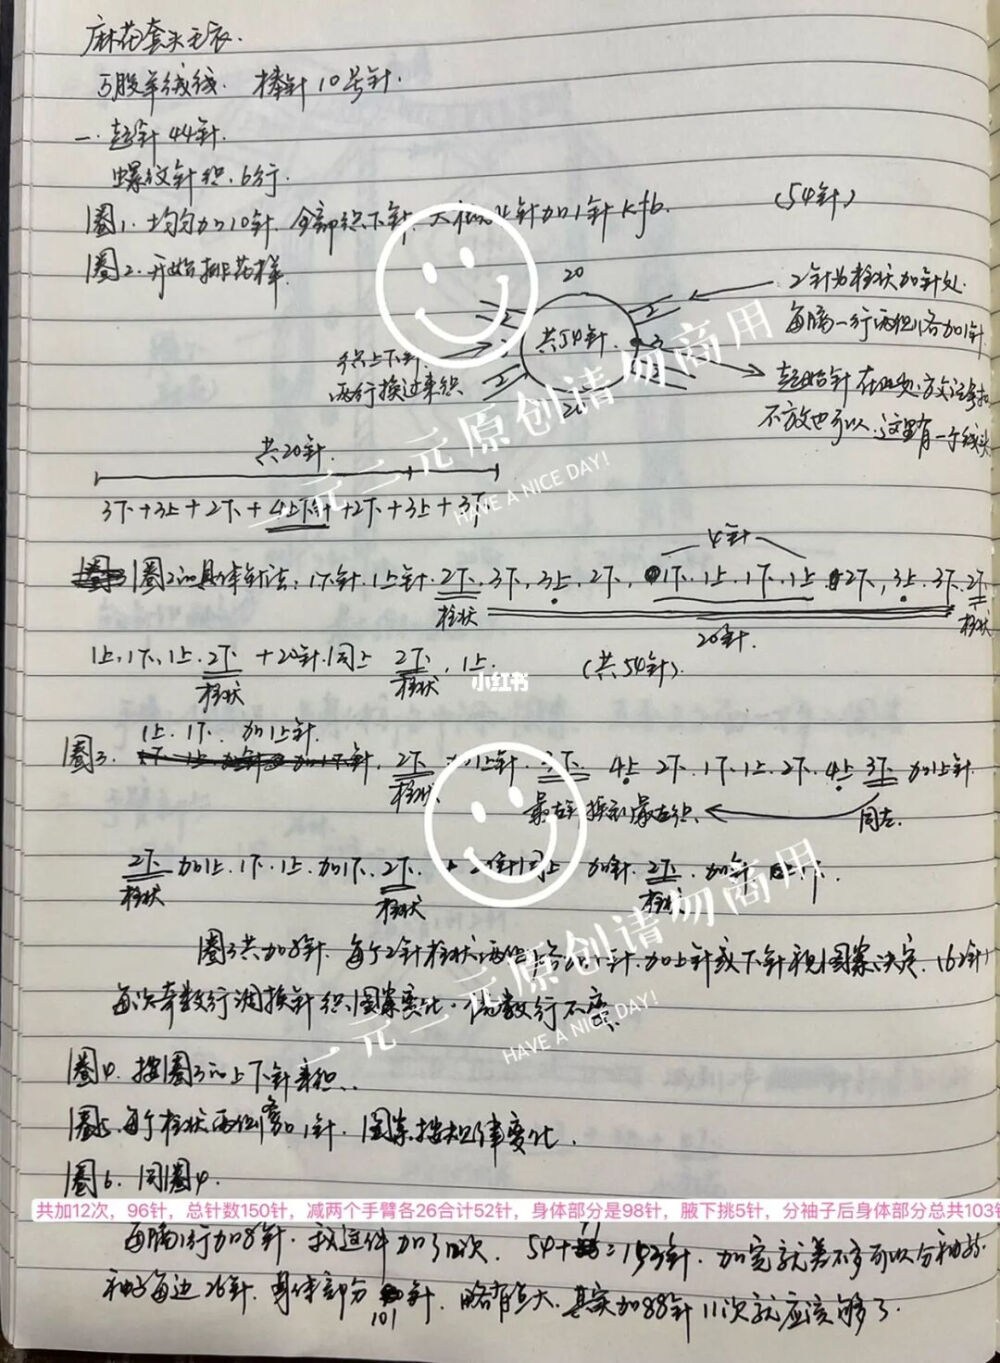 麻花套头毛衣.
5股羊绒线. 棒针10号针.
一. 起针44针.
螺纹针织.6行.
圈1. 均匀加10针. 全部织下针. 4针加1针 kfb. (54针)
圈2. 开始排花样.
20
2针为柱状加针处.
每隔一行两侧各加1针
共54针.
织上下针
两行换过来织
起始针在此处.放记号扣
不放也可以.这里有一个线头
共20针.
3下+3上+2下+4上下针+2下+3上+3下
4针
圈2的具体针法: 1下针.1上针.2下.3下.3上.2下.1下.1上.1下.1上.2下,3上.3下.2下
柱状
20针.
柱状
1上,1下,1上.2下 +20针.同上 2下.1上. (共54针).
柱状
柱状
1上.1下. 加1上针.
圈3. 2下 加1上针. 3下 4上 2下.1下.1上.2下.4上.3下 加1上针
柱状
最右换到最左织.
同左.
2下 加1上.1下.1上.加1下.2下. + 同上 加1针.2下.加1针
柱状
柱状
柱状
圈3共加8针. 每个2针柱状两侧各加1针.加上针或下针视图案决定.(62针)
每次奇数行调换针织.图案变化.偶数行不变.
圈4. 按圈3的上下针来织..
圈5. 每个柱状两侧各加1针. 图案按规律变化.
圈6. 同圈4.
共加12次，96针，总针数150针，减两个手臂各26合计52针，身体部分是98针，腋下挑5针，分袖子后身体部分总共103针
每隔1行加8针. 我这件加了12次. 54+ = 153针. 加完就差不多可以分袖
袖子每边26针. 身体部分 101 针. 略有点大. 其实加88针11次就应该够了.
一二元原创请勿商用
HAVE A NICE DAY!
小红书
一二元原创请勿商用
HAVE A NICE DAY!